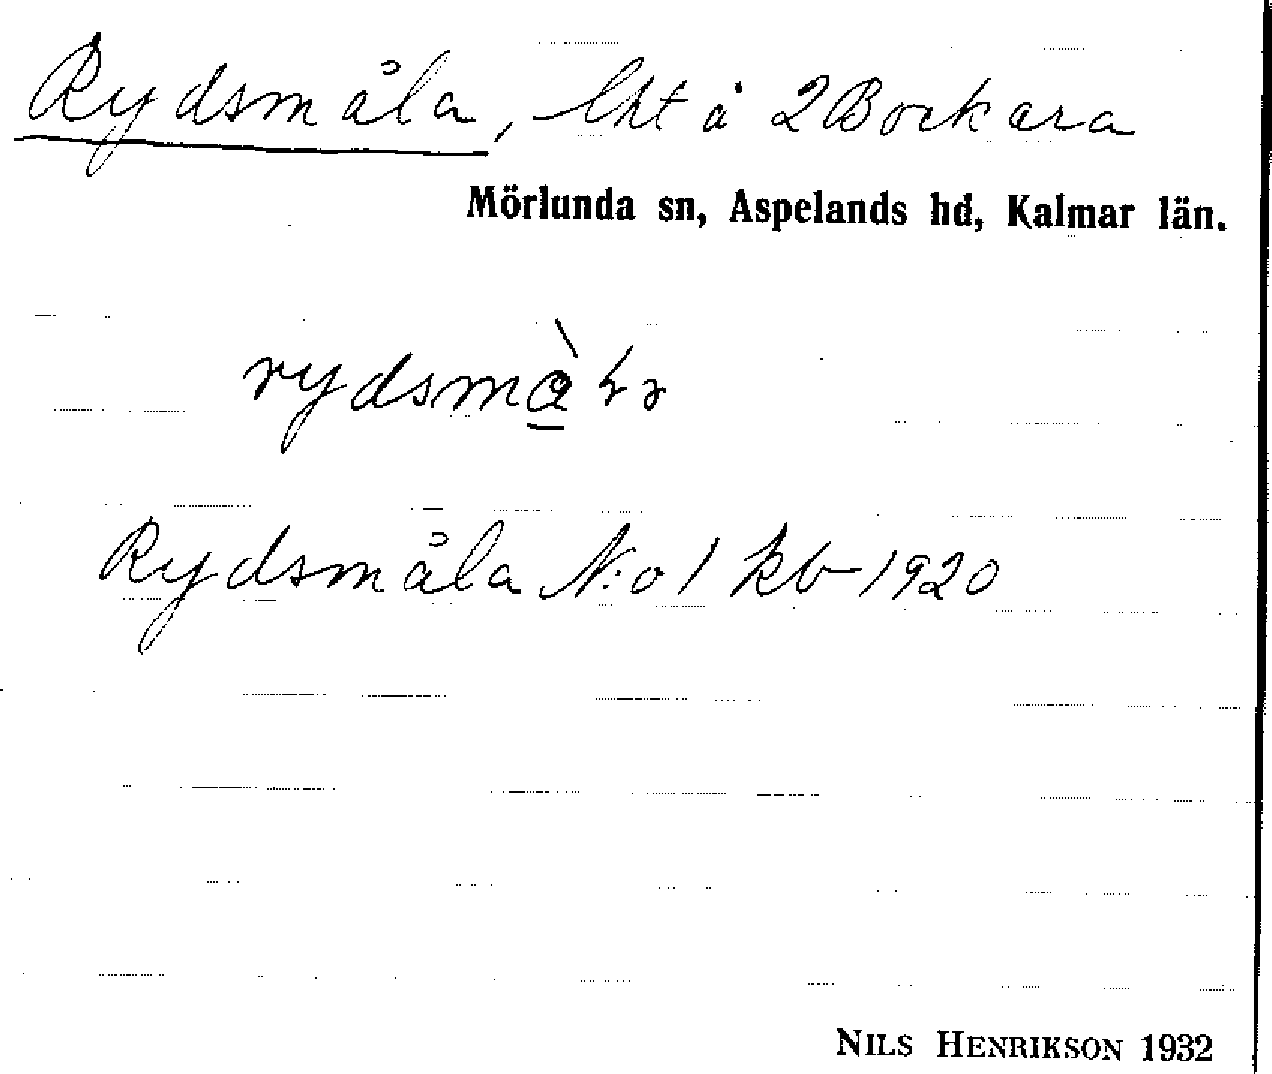 Rydsmåla, lht å 2 Bockara
Mörlunda sn, Aspelands hd, Kalmar län.
Rydsmåla N:o 1 kb 1920
NILS HENRIKSON 1932